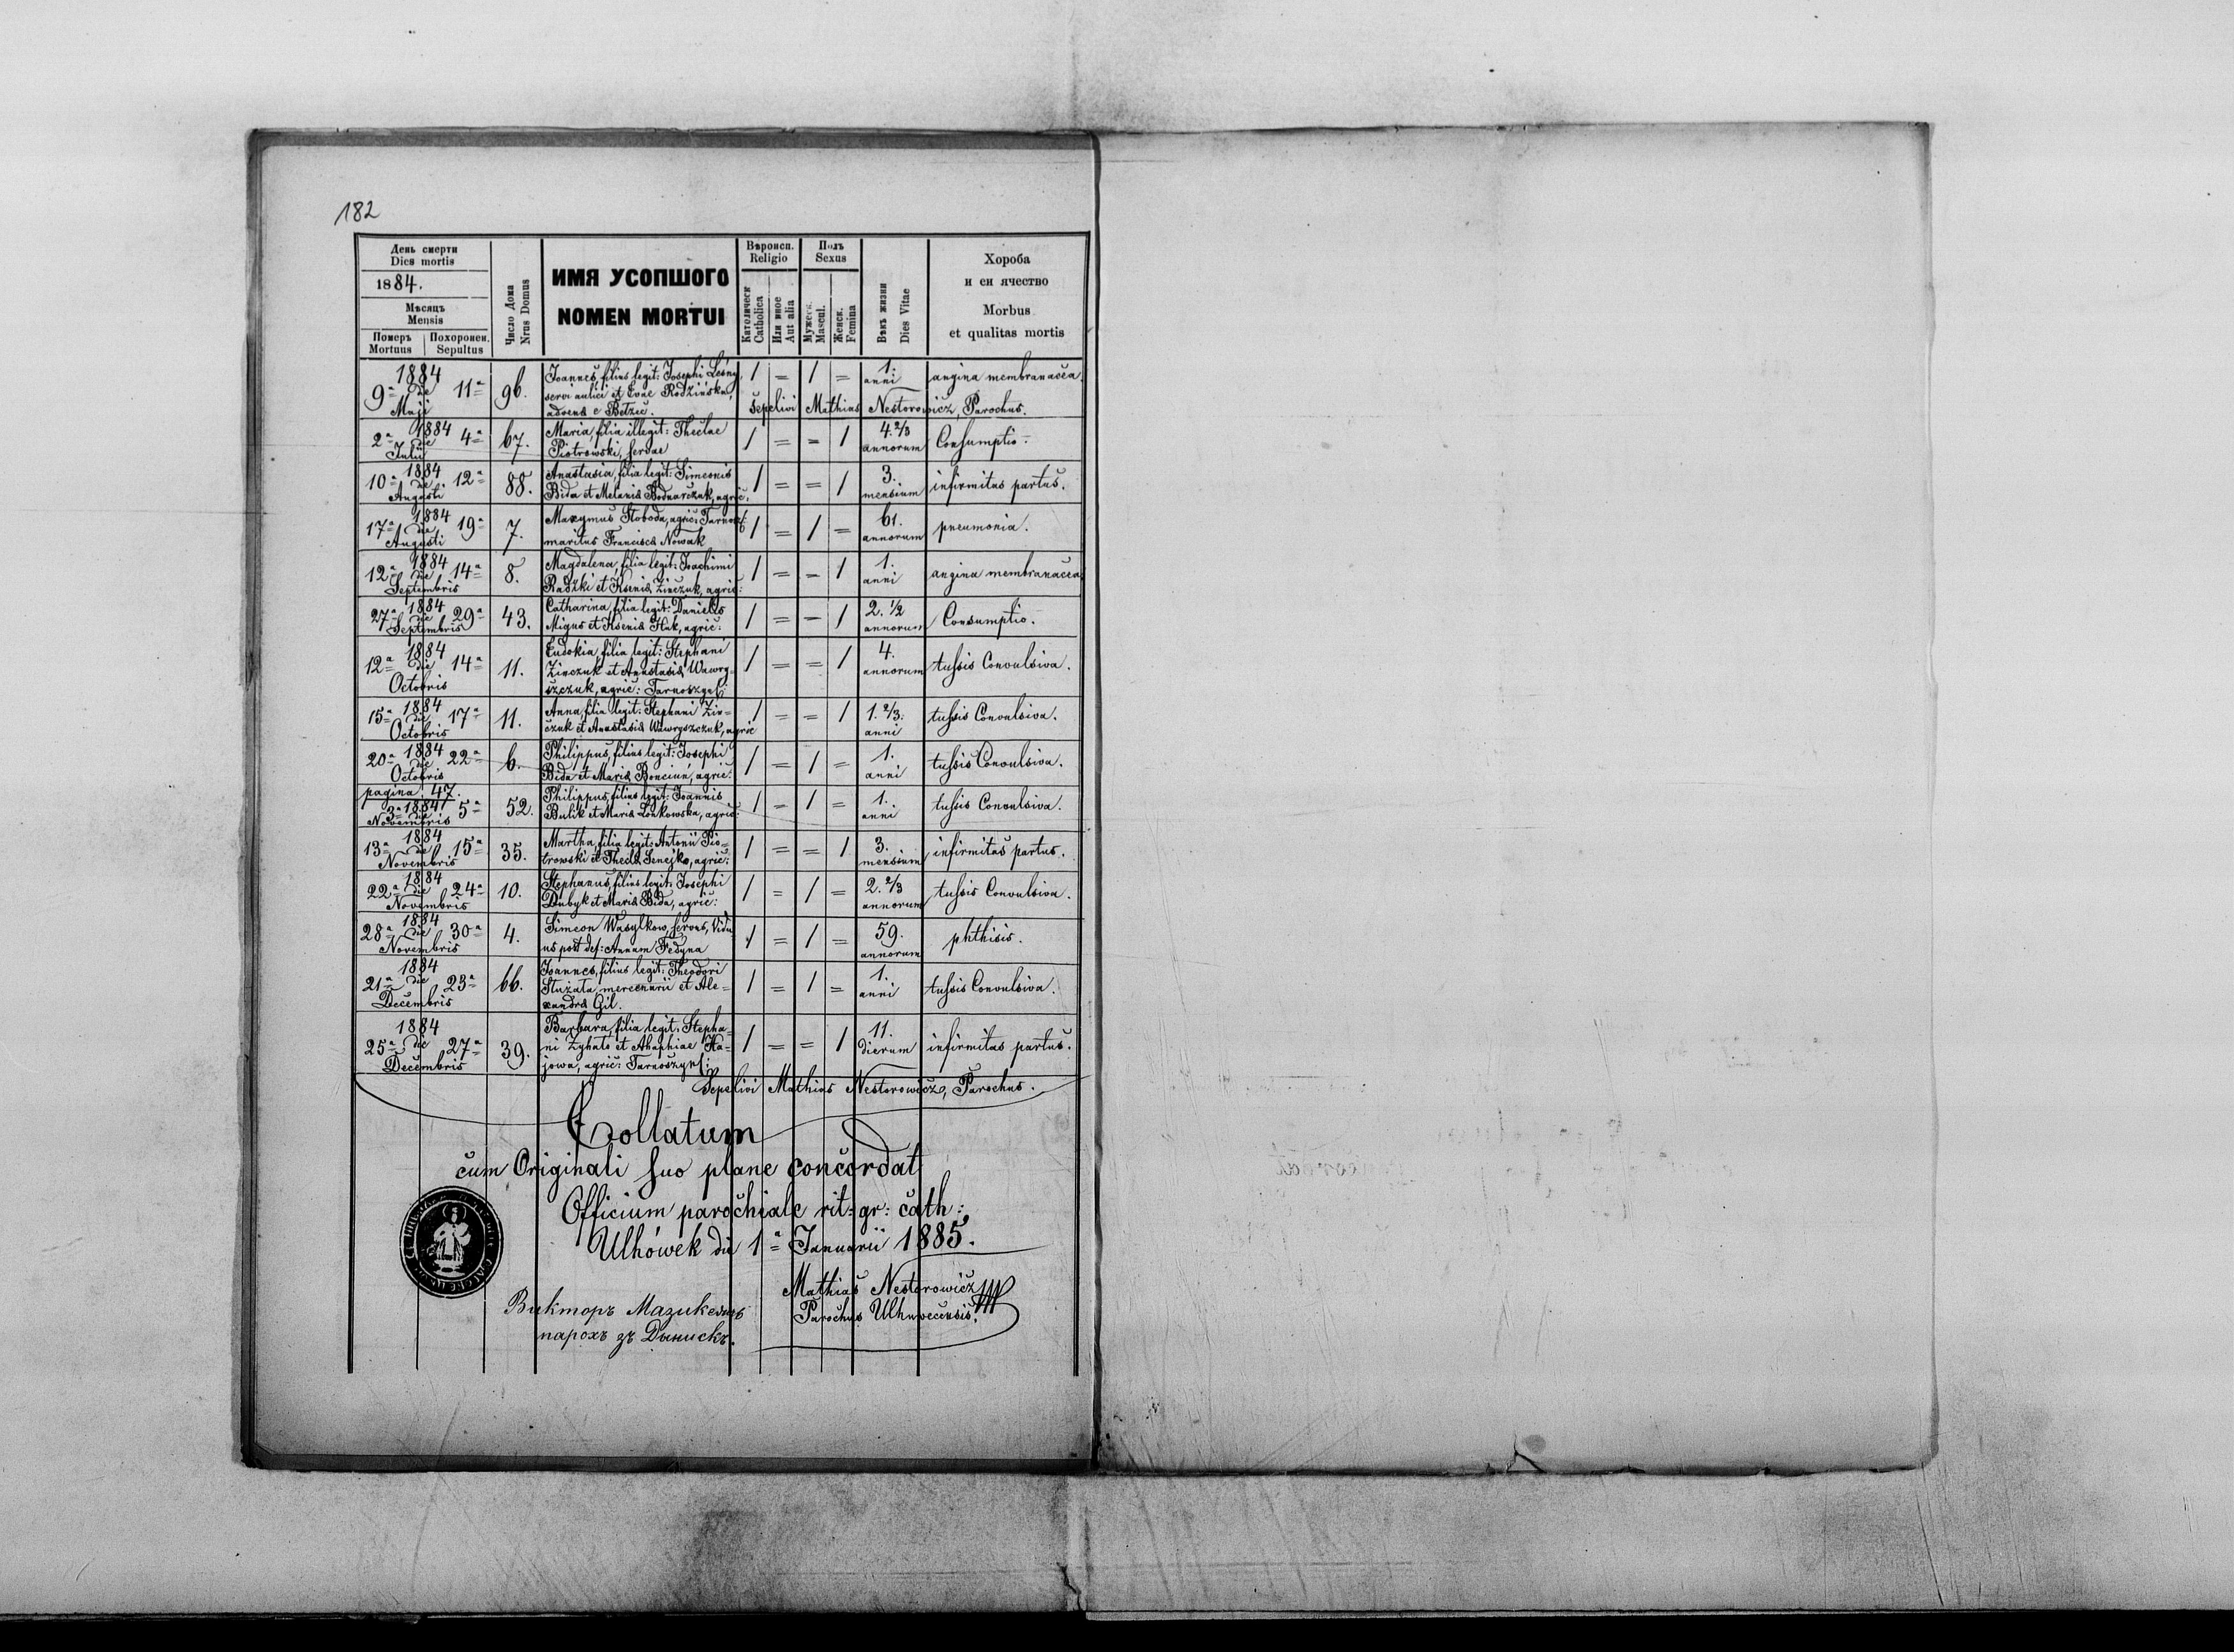 182
День смерти
Dies mortis
1884.
Мѣсяць
Mensis
Померъ Похоронен.
Mortuus Sepultus
Число Дома
Nrus Domus
ИМЯ УСОПШОГО
NOMEN MORTUI
Вѣроисп.
Religio
Католическ
Catholica
Или иное
Aut alia
Полъ
Sexus
Мужеск.
Mascul.
Женск.
Femina
Вѣкъ жизни
Dies Vitae
Хороба
и еи ячество
Morbus
et qualitas mortis
1884
9ª die 11ª
Maji
96.
Joannes, filius legit: Josephi Leśny,
servi aulici et Evae Rodzińska,
advena e Bełzec.
1 = 1 =
1. anni
angina membranacea.
Sepelivi Mathias Nestorowicz, Parochus.
1884
2ª die 4ª
Julii
67.
Maria, filia illegit: Theclae
Piotrowski, servae
1 = = 1
4. 2/3 annorum
Consumptio.
1884
10ª die 12ª
Augusti
88.
Anastasia, filia legit: Simeonis
Bida et Melania Bodnarczuk, agric:
1 = = 1
3. mensium
infirmitas partus.
1884
17ª die 19ª
Augusti
7.
Maxymus Słoboda, agric: Tarnosz:
maritus Francisca Nowak
1 = 1 =
61. annorum
pneumonia.
1884
12ª die 14ª
Septembris
8.
Magdalena, filia legit: Joachimi
Radzki et Ksenia Zinczuk, agric:
1 = = 1
1. anni
angina membranacea
1884
27ª die 29ª
Septembris
43.
Catharina, filia legit: Danielis
Migus et Ksenia Huk, agric:
1 = = 1
2. 1/2 annorum
Consumptio.
1884
12ª die 14ª
Octobris
11.
Eudokia, filia legit: Stephani
Zinczuk et Anastasia Wawry-
szczuk, agric: Tarnoszyn:
1 = = 1
4. annorum
tussis Convulsiva.
1884
15ª die 17ª
Octobris
11.
Anna, filia legit: Stephani Zin-
czuk et Anastasia Wawryszczuk, agric
1 = = 1
1. 2/3. anni
tussis Convulsiva.
1884
20ª die 22ª
Octobris
6.
Philippus, filius legit: Josephi
Bida et Maria Bonciun, agric:
1 = 1 =
1. anni
tussis Convulsiva.
pagina 47.
1884
3ª die 5ª
Novembris
52.
Philippus, filius legit: Joannis
Bulik et Maria Lonkowska, agric:
1 = 1 =
1. anni
tussis Convulsiva.
1884
13ª die 15ª
Novembris
35.
Martha, filia legit: Antonii Pio-
trowski et Thecla Senejko, agric:
1 = = 1
3. mensium
infirmitas partus.
1884
22ª die 24ª
Novembris
10.
Stephanus, filius legit: Josephi
Dubyk et Maria Bida, agric:
1 = 1 =
2. 2/3 annorum
tussis Convulsiva.
1884
28ª die 30ª
Novembris
4.
Simeon Wasylkow, servus, Vidu
us post def: Annam Fedyna
1 = 1 =
59. annorum
phthisis.
1884
21ª die 23ª
Decembris
66.
Joannes, filius legit: Theodori
Stużata, mercenarii et Ale-
xandra Gil.
1 = 1 =
1. anni
tussis Convulsiva.
1884
25ª die 27ª
Decembris
39.
Barbara, filia legit: Stepha-
ni Zyhato et Ahaphiae Ha-
jowa, agric: Tarnoszyn:
1 = = 1
11. dierum
infirmitas partus.
Sepelivi Mathias Nestorowicz, Parochus.
Collatum
cum Originali suo plane concordat
Officium parochiale rit: gr: cath:
Ulhówek die 1ª Januarii 1885.
Mathias Nestorowicz
Parochus Ulhuvecensis.
Викторъ Мазикевичъ
парохъ зъ Дынискъ.